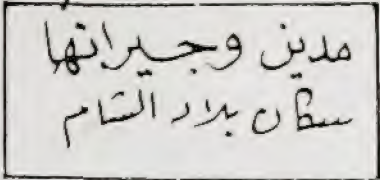 مدين وجيرانها
سكان بلاد الشام